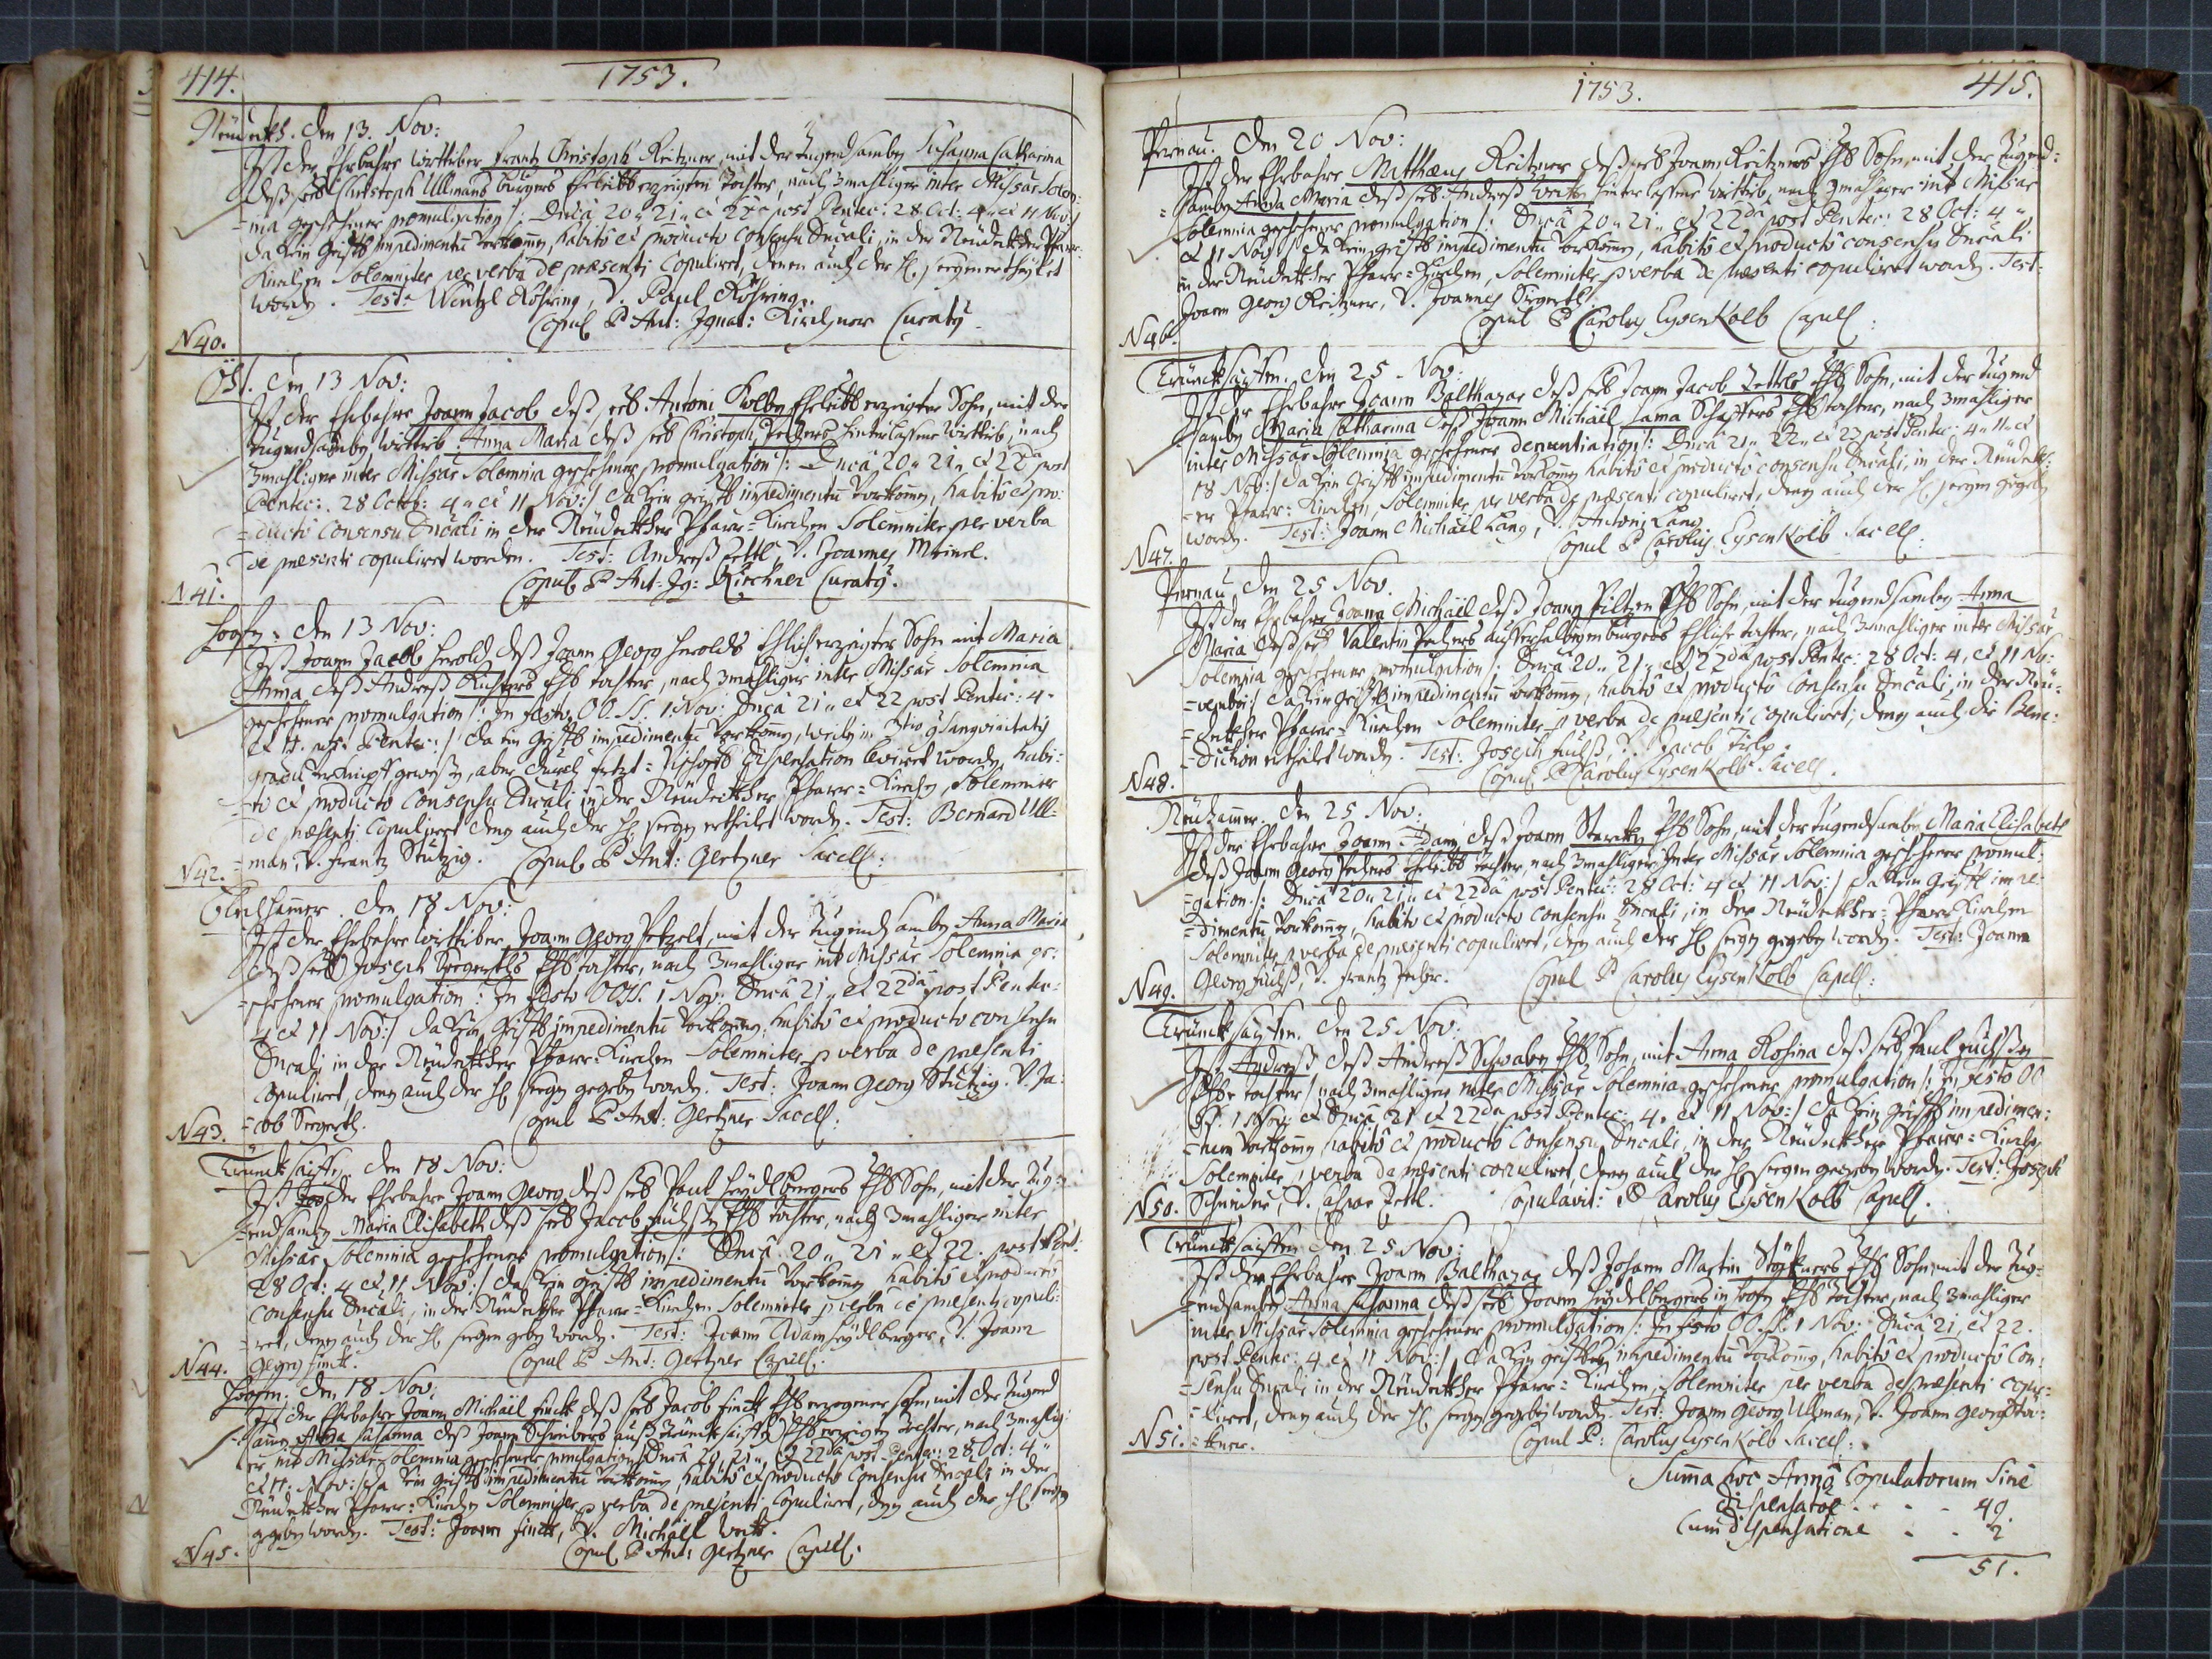 414.
1753.
Neudeckh. den 13. Nov:
Ist der Ehrbahre wittiber Frantz Christoph Reitzner, mit der tugendsamben Susanna Catharina
deß seel Christoph Ullmans burgers Ehrleibl erzeigten Tochter, nach 3mahliger inter Missar Solem-
nia geschehener promulgation /: Dnica 20 " 21 " et 22da post Pentec: 28 Oct: 4 " et 11 Nov:/
da kein geistl impedimentu vorkomen, habito et producto consensu Ducali, in der Neudekher Pfarr-
Kirchen Solemniter per verba de praesenti Copuliret, denen auch der H. seegen ertheylet
worden. Test: Wentzl Röhring, V. Paul Röhring.
Copul P Ant: Ignat: Kirchner Curaty
N 40.
den 13 Nov:
Ist der Ehrbahre Joann Jacob deß seel Antoni Kolben Ehrleibl erzeigter Sohn, mit der
tugendsamben wittib Anna Maria deß seel Christoph Pechers hinterlassene wittib, nach
3mahliger inter Missar Solemnia geschehener promulgation /: Dnica 20 " 21 " et 22da post
Pentec: 28 Octob: 4 " et 11 Nov:/ da kein geistl impedimentu vorkomen, habito et pro-
=ducto Consensu Ducali in der Neudekher Pfarr-Kirchen Solemniter per verba
de praesenti copuliret worden. Test: Andreß Zettl, V. Joannes Meinel.
Copul P Ant: Ig: Kirchner Curaty.
N 41.
Hoofen: den 13 Nov:
Ist Joann Jacob Herold deß Joann Georg Herolds Ehlich erzeigter Sohn mit Maria
Anna deß Andreß Kusters Ehl tochter, nach 3mahliger inter Missar Solemnia
geschehener promulgation /: In festo OO. SS. 1. Nov: Dnica 21 " et 22 post Pentec: 4 "
et 11. post Pentec:/ da ein geistl impedimentu vorkomen, weilen in 3tio Consangvinitatis
gradu verknüpft gewesen, aber durch Ertz-Bischofl Dispensation leviret worden, habi-
to et producto Consensu Ducali in der Neudeckher Pfarr-Kirchen, Solemniter
de praesenti Copuliret denen auch der H. seegen ertheilet worden. Test: Bernard Ull-
=man, V. Frantz Stützig. Copul P Ant: Gertzner Sacell:
N 42.
den 18 Nov:
Ist der Ehrbahre wittiber Joann Georg Petzelt, mit der tugendsamben Anna Maria
deß seel Joseph Seegertls Ehl tochter, nach 3mahliger int Missar Solemnia ge-
=schehener promulgation: In festo OOSS. 1 Nov: Dnica 21 " et 22da post Pentec:
4 et 11 Nov:/ da kein Geistl impedimentu vorkomen, habito et producto consensu
Ducali in der Neudekher Pfarr-Kirchen Solemniter p verba de praesenti
Copuliret, denen auch der H seegen gegeben worden. Test: Joann Georg Stützig. V. Ja-
=cob Seegertl. Copul P Ant: Gertzner Sacell:
N 43.
Trinckseiffen. den 18 Nov:
Ist der Ehrbahre Joann Georg, deß seel Paul Heydlbergers Ehl Sohn, mit der tug-
=endsamben Maria Elisabeth deß seel Jacob Fuchsen Ehl tochter, nach 3mahliger inter
Missar Solemnia geschehener promulgation /: Dnica 20 " 21 " et 22. post Pent:
28 Oct: 4 et 11 Nov:/ da kein geistl impedimentu vorkomen habito et producto
consensu Ducali, in der Neudekher Pfarr-Kirchen Solemniter p verba de praesenti copuli-
=ret, denen auch der H seegen geben worden. Test: Joann Adam Heydlberger, V. Joann
Georg Finck. Copul P Ant: Gertzner Capell:
N 44.
Hoofen. den 18 Nov:
Ist der Ehrbahre Joann Michaël Finck deß seel Jacob Finck Ehl erzogener Sohn, mit der tugend
samen Anna Susanna deß Joann Schreibers auß Trinckseiffen Ehl erzeigten tochter, nach 3mahlig-
er int Missar Solemnia geschehener promulgation /: Dnica 20, 21 " et 22da post Pentec: 28 Oct: 4 "
et 11. Nov:/ da kein Geistl impedimentu vorkomen, habito et producto Consensu Ducali in der
Neudekher Pfarr-Kirchen Solemniter p verba de praesenti Copuliret, denen auch der H. seegen
gegeben worden. Test: Joann Finck, V. Michaël Veith.
Copul P Ant: Gertzner Capell:
N 45.
1753.
415.
Bernau. den 20 Nov:
Ist der Ehrbahre Matthaeus Reitzner deß seel Joann Reitzners Ehl Sohn, mit der tugend-
=samben Anna Maria deß seel Andreß Veiths hinterlassene wittib, nach 3mahliger int Missar
Solemnia geschehener promulgation /: Dnica 20 " 21 " et 22da post Pentec: 28 Oct: 4 "
et 11 Nov:/ da kein geistl impedimentu vorkomen, habito et producto consensu Ducali
in der Neudekher Pfarr-Kirchen, Solemniter p verba de praesenti copuliret worden. Test:
Joann Georg Reitzner, V. Joannes Seegertl.
Copul P Carolus Eysenkolb Capell:
N 46.
Trinckseiffen. den 25 Nov:
Ist der Ehrbahre Joann Balthazar deß seel Joann Jacob Zettls Ehl Sohn, mit der tugend
samben Maria Catharina deß Joann Michaël Schaffers Ehl tochter, nach 3mahliger
inter Missar Solemnia geschehener denuntiation /: Dnica 21 " 22 " et 23 post Pentec: 4 " 11 " et
18 Nov:/ da kein Geistl impedimentu vorkomen habito et producto consensu Ducali, in der Neudekh-
=er Pfarr-Kirchen, Solemniter per verba de praesenti copuliret, denen auch der H. seegen gegeben
worden. Test: Joann Michaël Lang, V. Antoni Lang
Copul P Carolus Eysenkolb Sacell:
N 47.
Bernau den 25 Nov.
Ist der Ehrbahre Joann Michaël deß Joann Piltzen Ehl Sohn, mit der tugendsamben Anna
Maria deß seel Valentin Pechers burgers Ehliche tochter, nach 3mahliger inter Missar
Solemnia geschehener promulgation /: Dnica 20 " 21 " et 22da post Pentec: 28 Oct: 4, et 11 No-
=vember:/ da kein geistl impedimentu vorkomen, habito et producto Consensu Ducali, in der Neu-
=dekher Pfarr-Kirchen Solemniter p verba de praesenti copuliret, denen auch die Bene-
=diction ertheilt worden. Test: Joseph Fuchß, V. Jacob
Copul P Carolus Eysenkolb Sacell.
N 48.
Neuhamer. den 25 Nov:
Ist der Ehrbahre Joann Adam, deß Joann Starcken Ehl Sohn, mit der tugendsamben Maria Elisabeth
deß Joann Georg Pechers Ehrleibl tochter, nach 3mahliger Inter Missar Solemnia geschehener promul-
=gation /: Dnica 20 " 21 " et 22da post Pentec: 28 Oct: 4 et 11 Nov:/ da kein Geistl impe-
=dimentu vorkomen, habito et producto consensu Ducali, in der Neudekher-Pfarr Kirchen
Solemniter p verba de praesenti copuliret, denen auch der H seegen gegeben worden. Test: Joann
Georg Fuchß, V. Frantz Pecher. Copul P Carolus Eysenkolb Capell:
N 49.
Trinckseiffen. den 25 Nov:
Ist Andreß deß Andreß Schwaben Ehl Sohn, mit Anna Rosina deß seel Paul Fuchßen
Ehl tochter / nach 3mahliger inter Missar Solemnia geschehener promulgation /: In festo OO
SS. 1 Nov: et Dnica 21 et 22da post Pentec: 4. et 11 Nov:/ da kein geistl impedimen-
=tum vorkomen, habito et producto Consensu Ducali, in der Neudekher Pfarr-Kirchen
Solemniter p verba de praesenti copuliret, denen auch der H seegen gegeben worden. Test: Joseph
Schneider, V. Zettl. Copulavit: P Carolus Eysenkolb Capell.
N 50.
Trinckseiffen den 25 Nov:
Ist der Ehrbahre Joann Balthazar deß Johann Martin Ehl Sohn, mit der tug-
=endsamben Anna Susanna deß seel Joann Heydelbergers in Hoofen Ehl tochter, nach 3mahliger
inter Missar Solemnia geschehener promulgation /: In festo OO. SS. 1 Nov: Dnica 21, et 22.
post Pentec: 4 et 11 Nov:/ da kein geistl impedimentu vorkomen, habito et producto Con-
=sensu Ducali in der Neudekher Pfarr-Kirchen, Solemniter per verba de praesenti copu-
=liret, denen auch der H. seegen gegeben worden. Test: Joann Georg Ullman, V. Joann Georg
Copul P: Carolus Eysenkolb Sacell:
N 51.
Summa hoc Anno Copulatorum Sine
Dispensatioe - - 49.
Cum dispensatione - - 2
51.